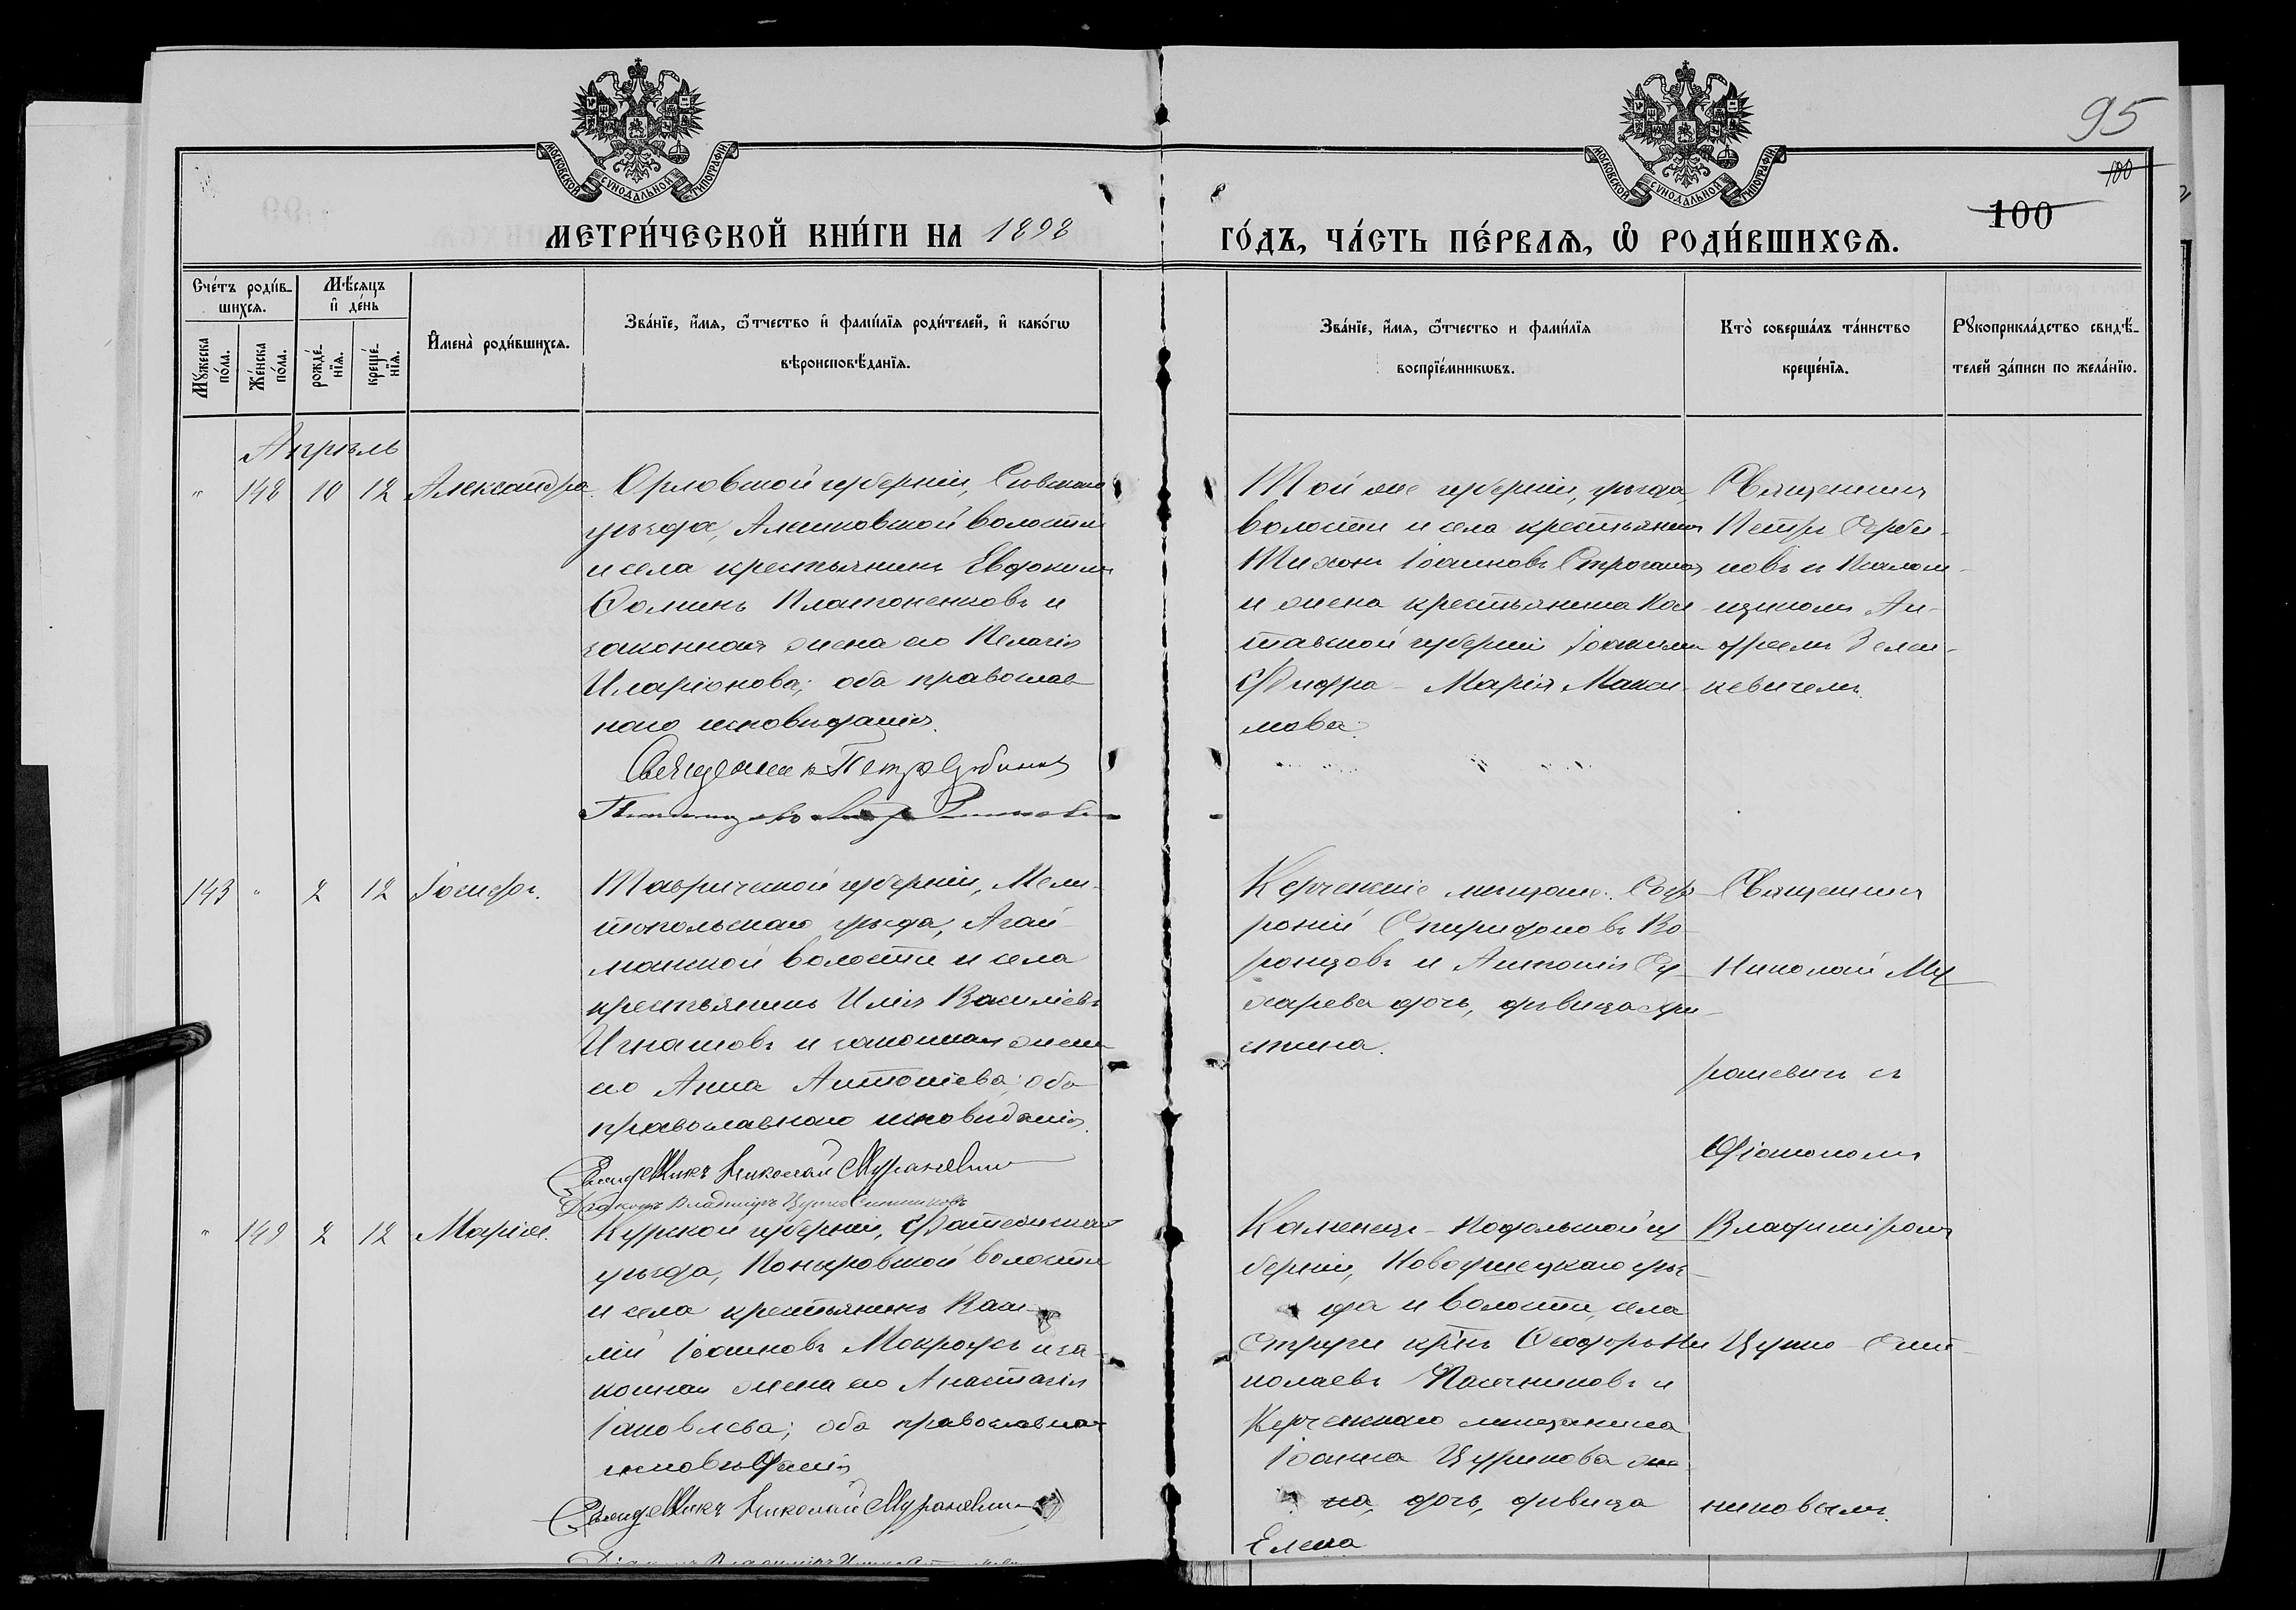 95
100
100
МОСКОВСКОЙ СУНОДАЛЬНОЙ ТИПОГРАФІИ
МОСКОВСКОЙ СУНОДАЛЬНОЙ ТИПОГРАФІИ
МЕТРИ́ЧЕСКОЙ КНИ́ГИ НА 1898 ГО́ДЪ, ЧА́СТЬ ПЕ́РВАЯ, Ѡ РОДИ́ВШИХСЯ.
Сче́тъ роди́в-
шихся.
Мѣ́сяцъ
и де́нь
Мꙋ́жеска
по́ла.
Же́нска
по́ла.
рожде́-
нїя.
креще́-
нїя.
И҆мена̀ роди́вшихся.
Зва́нїе, и҆́мя, ѻ҆́тчество и҆ фами́лїя роди́телей, и҆ како́гѡ
вѣроисповѣ́данїя.
Зва́нїе, и҆́мя, ѻ҆́тчество и фами́лїя
воспрїе́мникѡвъ.
Кто̀ соверша́лъ та́инство
креще́нїя.
Рꙋкоприкла́дство свидѣ́-
телей за́писи по жела́нїю.
Апрѣль
" 148 10 12 Александра.
Орловской губерніи, Сѣвскаго
уѣзда, Алешковской волости
и села крестьянинъ Евдокимъ
Фоминъ Платоненковъ и
законная жена его Пелагія
Иларіонова; оба православ
наго исповѣданія.
Священникъ Петръ Сербиновъ
Той же губерніи, уѣзда,
волости и села крестьянинъ
Тихонъ Іоанновъ Строгановъ
и жена крестьянина Пол-
тавской губерніи Іоакима
Фидра - Марія Макси-
мова.
Священникъ
Петръ Серби-
новъ и Псалом-
щикомъ Ан-
дреемъ Зелен-
кевичемъ.
143 " 2 12 Іосифъ.
Таврической губерніи, Мели-
топольскаго уѣзда, Агай-
манской волости и села
крестьянинъ Илія Василіевъ
Игнатовъ и законная жена
его Анна Антоніева; оба
православнаго исповѣданія.
Священникъ Николай Мураневичъ
Діаконъ Владиміръ Цушко Ситниковъ
Керченскіе мѣщане: Соф-
роній Спиридоновъ Во-
ронцовъ и Антонія Су-
харева дочь, дѣвица Хри-
стина.
Священникъ
Николай Му
раневичъ съ
Діакономъ
Владиміромъ
Цушко - Сит-
никовымъ.
" 149 2 12 Марія.
Курской губерніи, Фатежскаго
уѣзда, Поныровской волости
и села крестьянинъ Васи-
лій Іоанновъ Мокроусъ и за-
конная жена его Анастасія
Іаковлева; оба православнаго
исповѣданія
Священникъ Николай Мураневичъ
Каменецъ - Подольской гу
берніи, Новоушецкаго уѣз-
да и волости, села
Струги кр-нъ Ѳеодоръ Ни
колаевъ Пасечниковъ и
Керченскаго мѣщанина
Іоанна Цурикова же
на, дочь, дѣвица
Елена